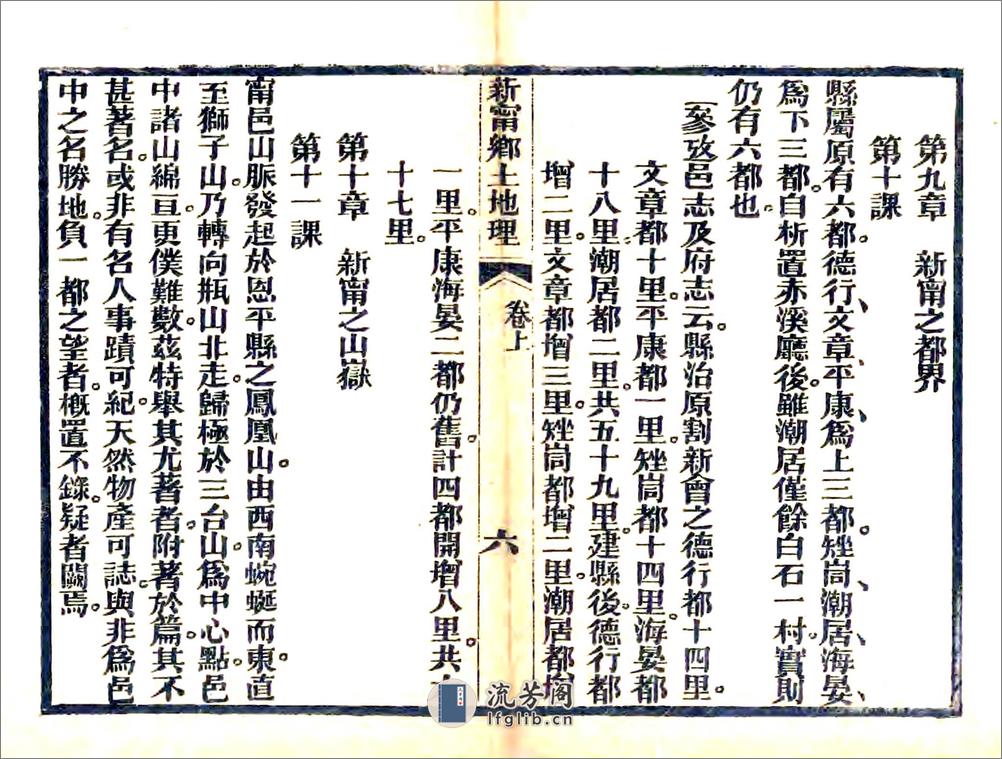 第九章　新甯之都界
第十課
縣屬原有六都德行、文章平康爲上三都。矬峝、潮居、海晏、
爲下三都。自析置赤溪廳後。雖潮居僅餘白石一村。實則
仍有六都也
(參攷邑志及府志云。縣治原割新會之德行都十四里。
文章都十里。平康都一里。矬峝都十四里。海晏都
十八里。潮居都二里。共五十九里。建縣後。德行都
增二里。文章都增三里。矬峝都增二里。潮居都增
新甯鄉土地理　卷上　六
一里。平康海晏二都仍舊。計四都開增八里。共六
十七里。
第十章　新甯之山嶽
第十一課
甯邑山脈發起於恩平縣之鳳凰山。由西南蜿蜒而東。直
至獅子山。乃轉向瓶山北走。歸極於三台山。爲中心點。邑
中諸山綿亘。更僕難數。茲特舉其尤著者。附著於篇。其不
甚著名。或非有名人事蹟可紀。天然物產可誌。與非爲邑
中之名勝地。負一都之望者。槪置不錄。疑者闕焉。
流芳閣
lfglib.cn